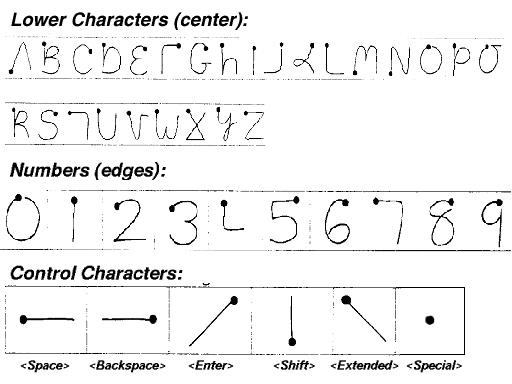 Lower Characters (center):
A B C D E F G h I J K L M N O P Q
R S T U V W X Y Z
Numbers (edges):
0 1 2 3 4 5 6 7 8 9
Control Characters:
<Space> <Backspace> <Enter> <Shift> <Extended> <Special>